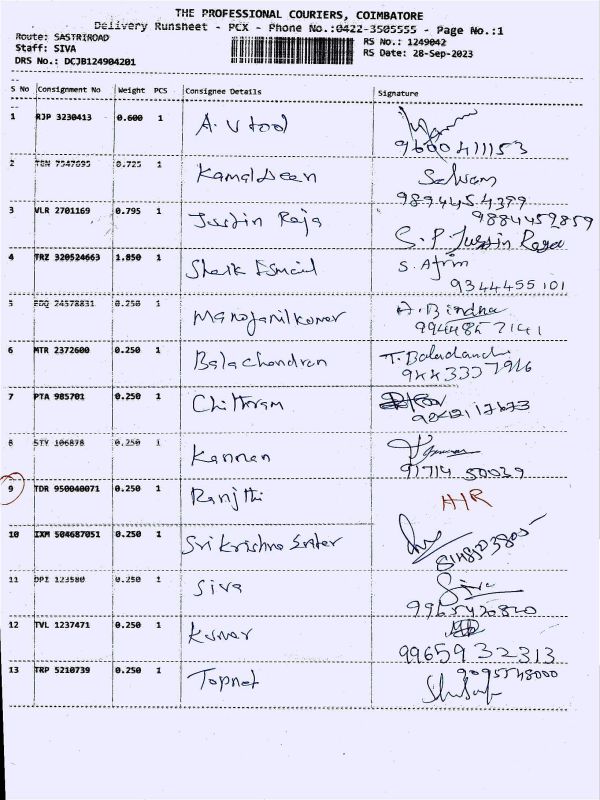 THE PROFESSIONAL COURIERS, COIMBATORE
Delivery Runsheet - PCX - Phone No.:0422-3505555 - Page No.:1
Route: SASTRIROAD
RS No.: 1249042
Staff: SIVA
RS Date: 28-Sep-2023
DRS No.: DCJB124904201
S No Consignment No Weight PCS Consignee Details Signature
1 RJP 3230413 0.600 1 A. Utool
9600411153
2 7547695 0.725 1 Kamaldeen Selvam
9894454399
3 VLR 2701169 0.795 1 Justin Raja 9884459859
S. P. Justin Raja
4 TRZ 320524663 1.850 1 Sheik Ismail S. Afrin
9344455101
5 24578831 0.250 1 Manojanilkumar A. Bindhu
9944857141
6 MTR 2372600 0.250 1 Balachandran T. Balachandr
9443337916
7 PTA 985701 0.250 1 Chithram
8 STY 106878 0.250 1 Kannan
9171450039
9 TDR 950040071 0.250 1 Ranjthi H/R
10 IXM 504687051 0.250 1 Srikrishna Enter
11 123580 0.250 1 Siva Siva
9965420820
12 TVL 1237471 0.250 1 Kumar
9965932313
13 TRP 5210739 0.250 1 Topnet 9095548000